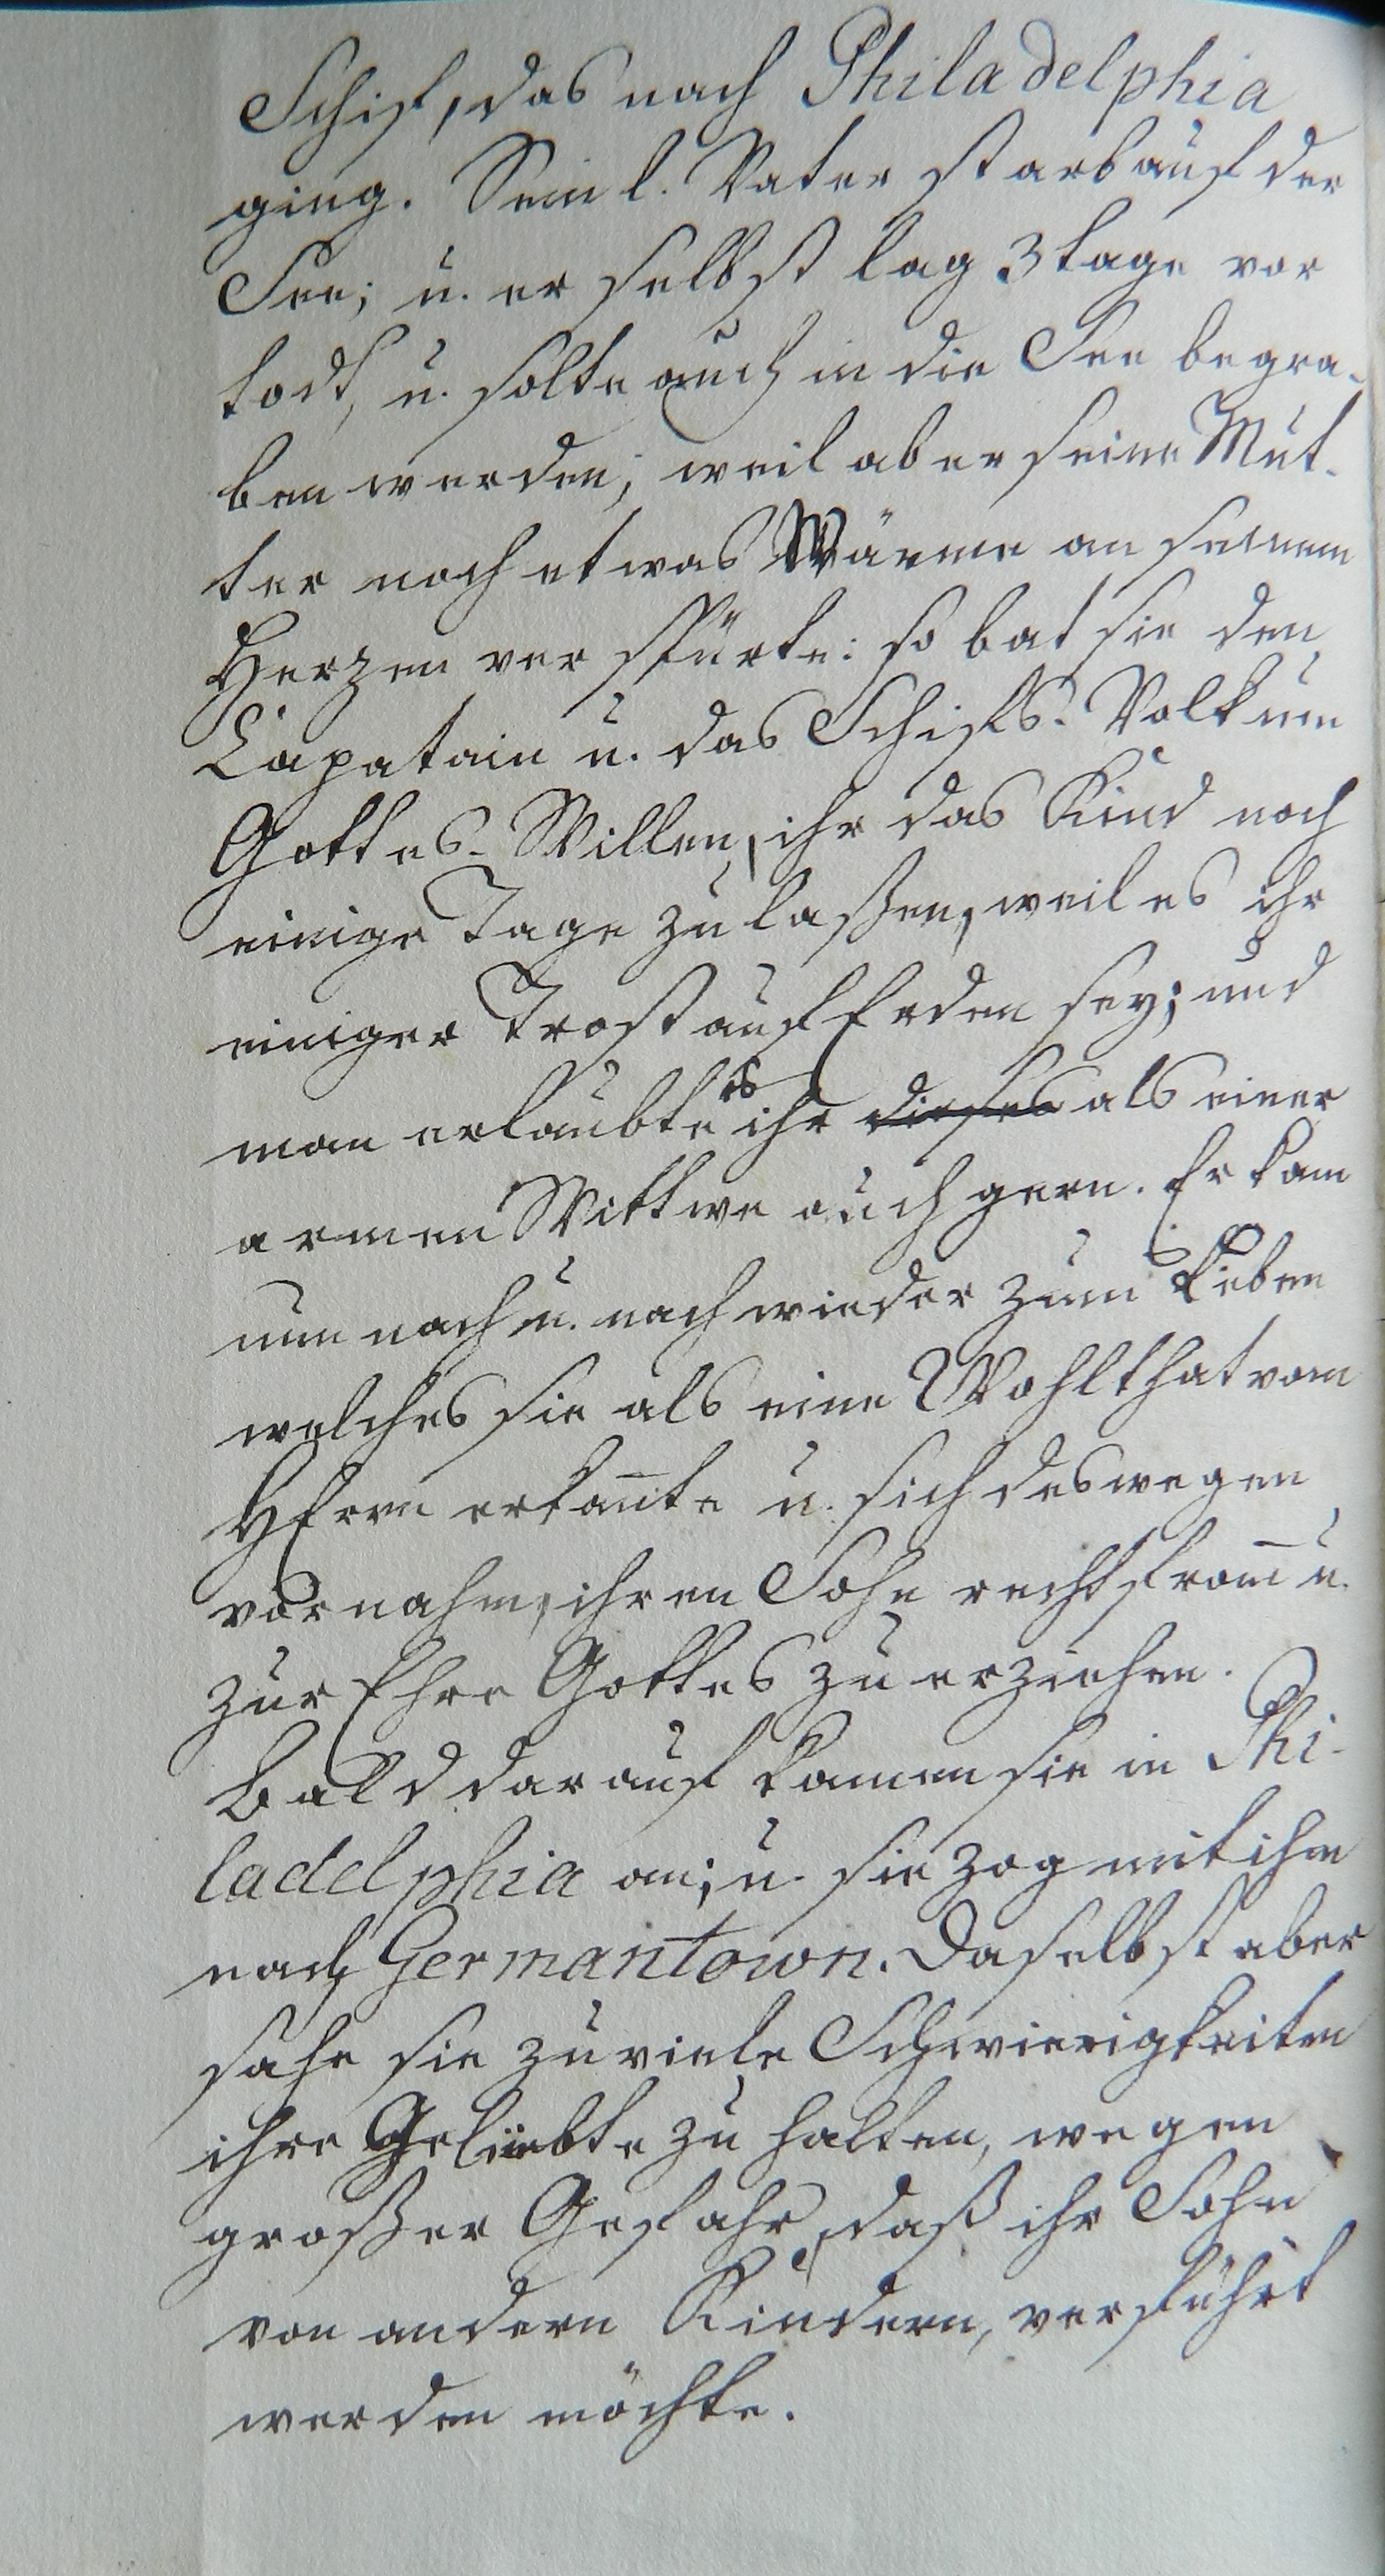 Schif, das nach Philadelphia
ging. Sein l. Vater starb auf der
See; u. er selbst lag 3 tage vor
todt, u. solte auch in die See begra-
ben werden; weil aber seine Mut-
ter noch etwas Wärme an seinem
Herzen verspürte: so bat sie den
Capatain u. das Schifs-Volk um
Gottes-Willen, ihr das Kind noch
einige Tage zu laßen, weil es ihr
einiger Trost auf Erden sey; und
man erlaubte es ihr dieses als einer
armen Wittwe auch gern. Er kam
nun nach u. nach wieder zum Leben
welches sie als eine Wohlthat vom
HErrn erkan̄te u. sich deswegen
vornahm, ihren Sohn recht from̄ u.
zur Ehre Gottes zu erziehen.
Bald darauf kamen sie in Phi-
ladelphia an; u. sie zog mit ihm
nach Germantown. Daselbst aber
sahe sie zu viele Schwierigkeiten
ihre Gelübte zu halten, wegen
großer Gefahr, daß ihr Sohn
von andern Kindern, verführt
werden möchte.